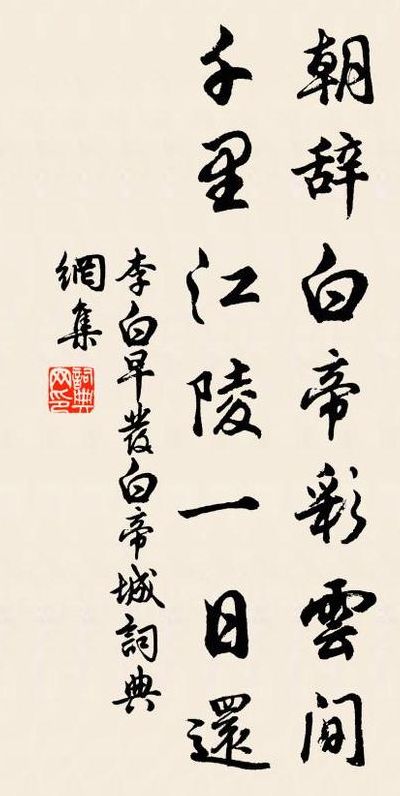 朝辞白帝彩雲間
千里江陵一日還
李白早發白帝城詞典
網集
詞典網印